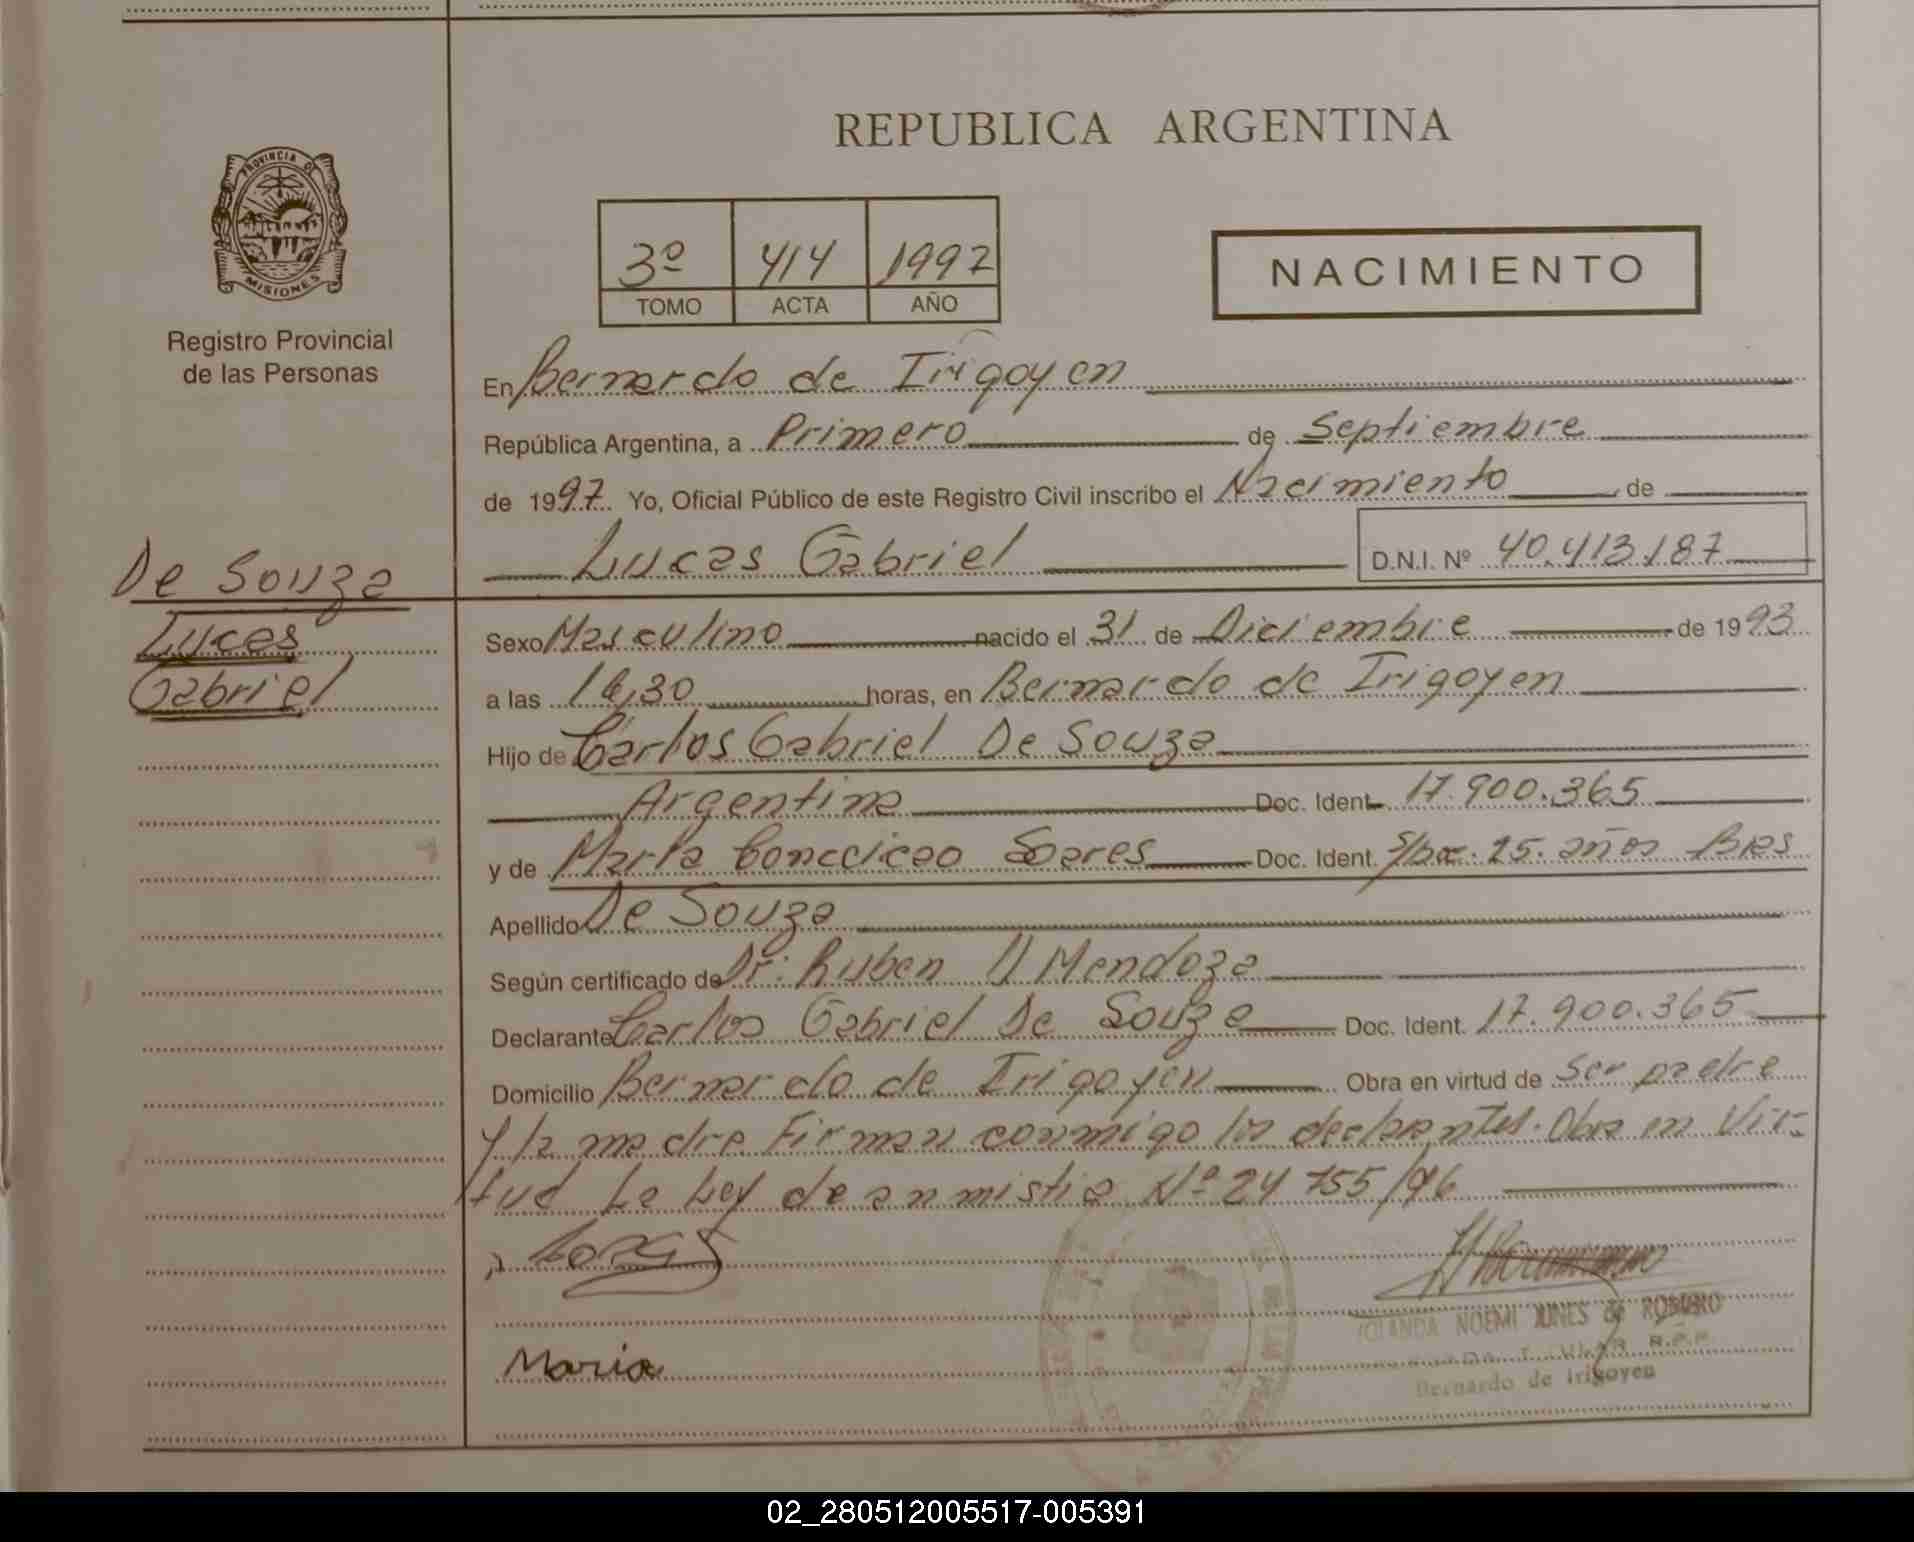 REPUBLICA ARGENTINA
PROVINCIA DE
MISIONES
Registro Provincial
de las Personas
3º 414 1997
TOMO ACTA AÑO
NACIMIENTO
En Bernardo de Irigoyen
República Argentina, a Primero de Septiembre
de 1997. Yo, Oficial Público de este Registro Civil inscribo el Nacimiento de
Lucas Gabriel D.N.I. Nº 40.413.187
De Souza
Lucas
Gabriel
Sexo Masculino nacido el 31 de Diciembre de 1993
a las 16,30 horas, en Bernardo de Irigoyen
Hijo de Carlos Gabriel De Souza
Argentina Doc. Ident. 17.900.365
y de Marta Conceicao Soares Doc. Ident. S/Doc. 25. años Bras
Apellido De Souza
Según certificado de Dr. Ruben Mendoza
Declarante Carlos Gabriel De Souza Doc. Ident. 17.900.365
Domicilio Bernardo de Irigoyen Obra en virtud de Ser padre
y la madre Firman conmigo los declarantes. Obra en Vir-
tud La Ley de anmistia Nº 24 755/96
Maria
NOEMI JUNES de ROMERO
Bernardo de Irigoyen
02_280512005517-005391